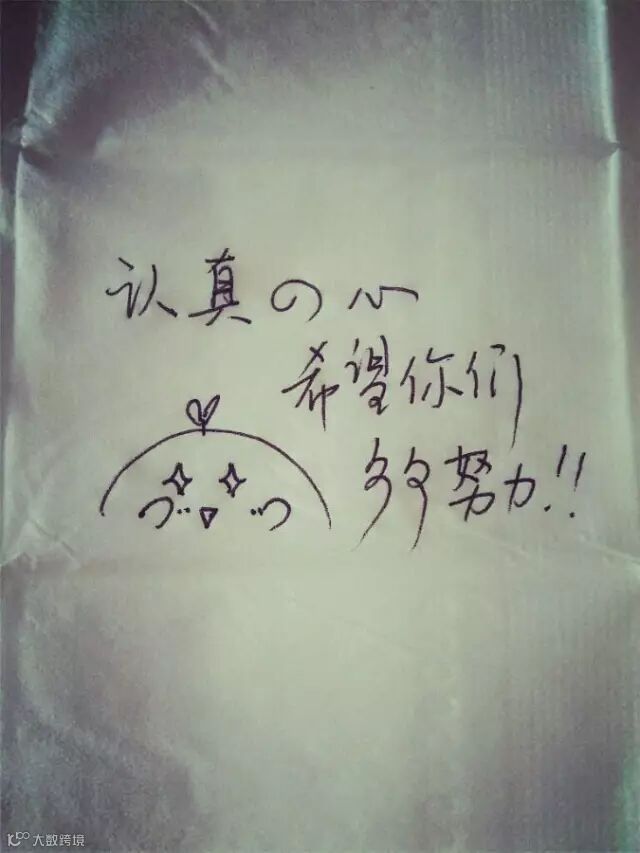 认真の心
希望你们
多多努力!!
大数跨境